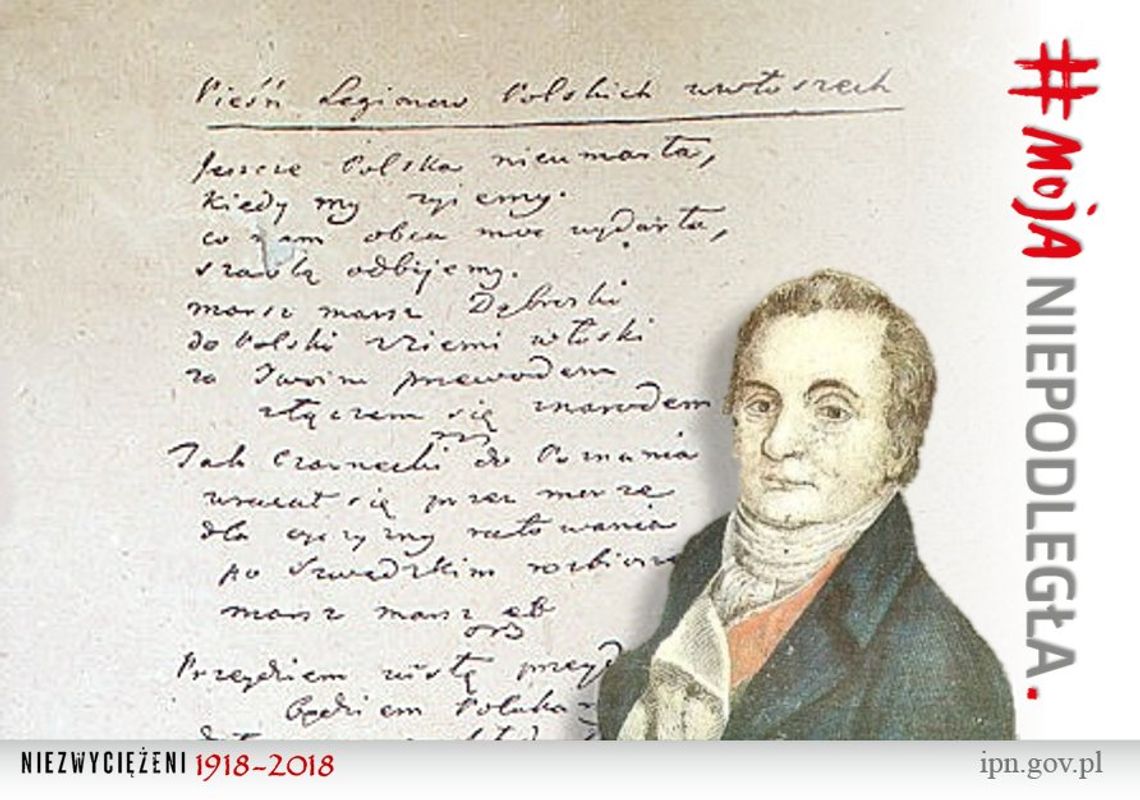 Pieśń Legionow Polskich wewłoszech
Jeszcze Polska nieumarła,
kiedy my żyiemy.
co nam obca moc wydarła,
szablą odbijemy.
marsz marsz Dąbroski
do Polski zziemi włoski
za Twoim przewodem
złączem się znarodem
Jak Czarnecki do Poznania
wracał się przez morze
dla oyczyzny ratowania
po Szwedzkim rozbiorze
marsz marsz etc
Przeydziem wisłę przeyd
będziem Polaka
#MOJA NIEPODLEGŁA.
NIEZWYCIĘŻENI 1918-2018
ipn.gov.pl